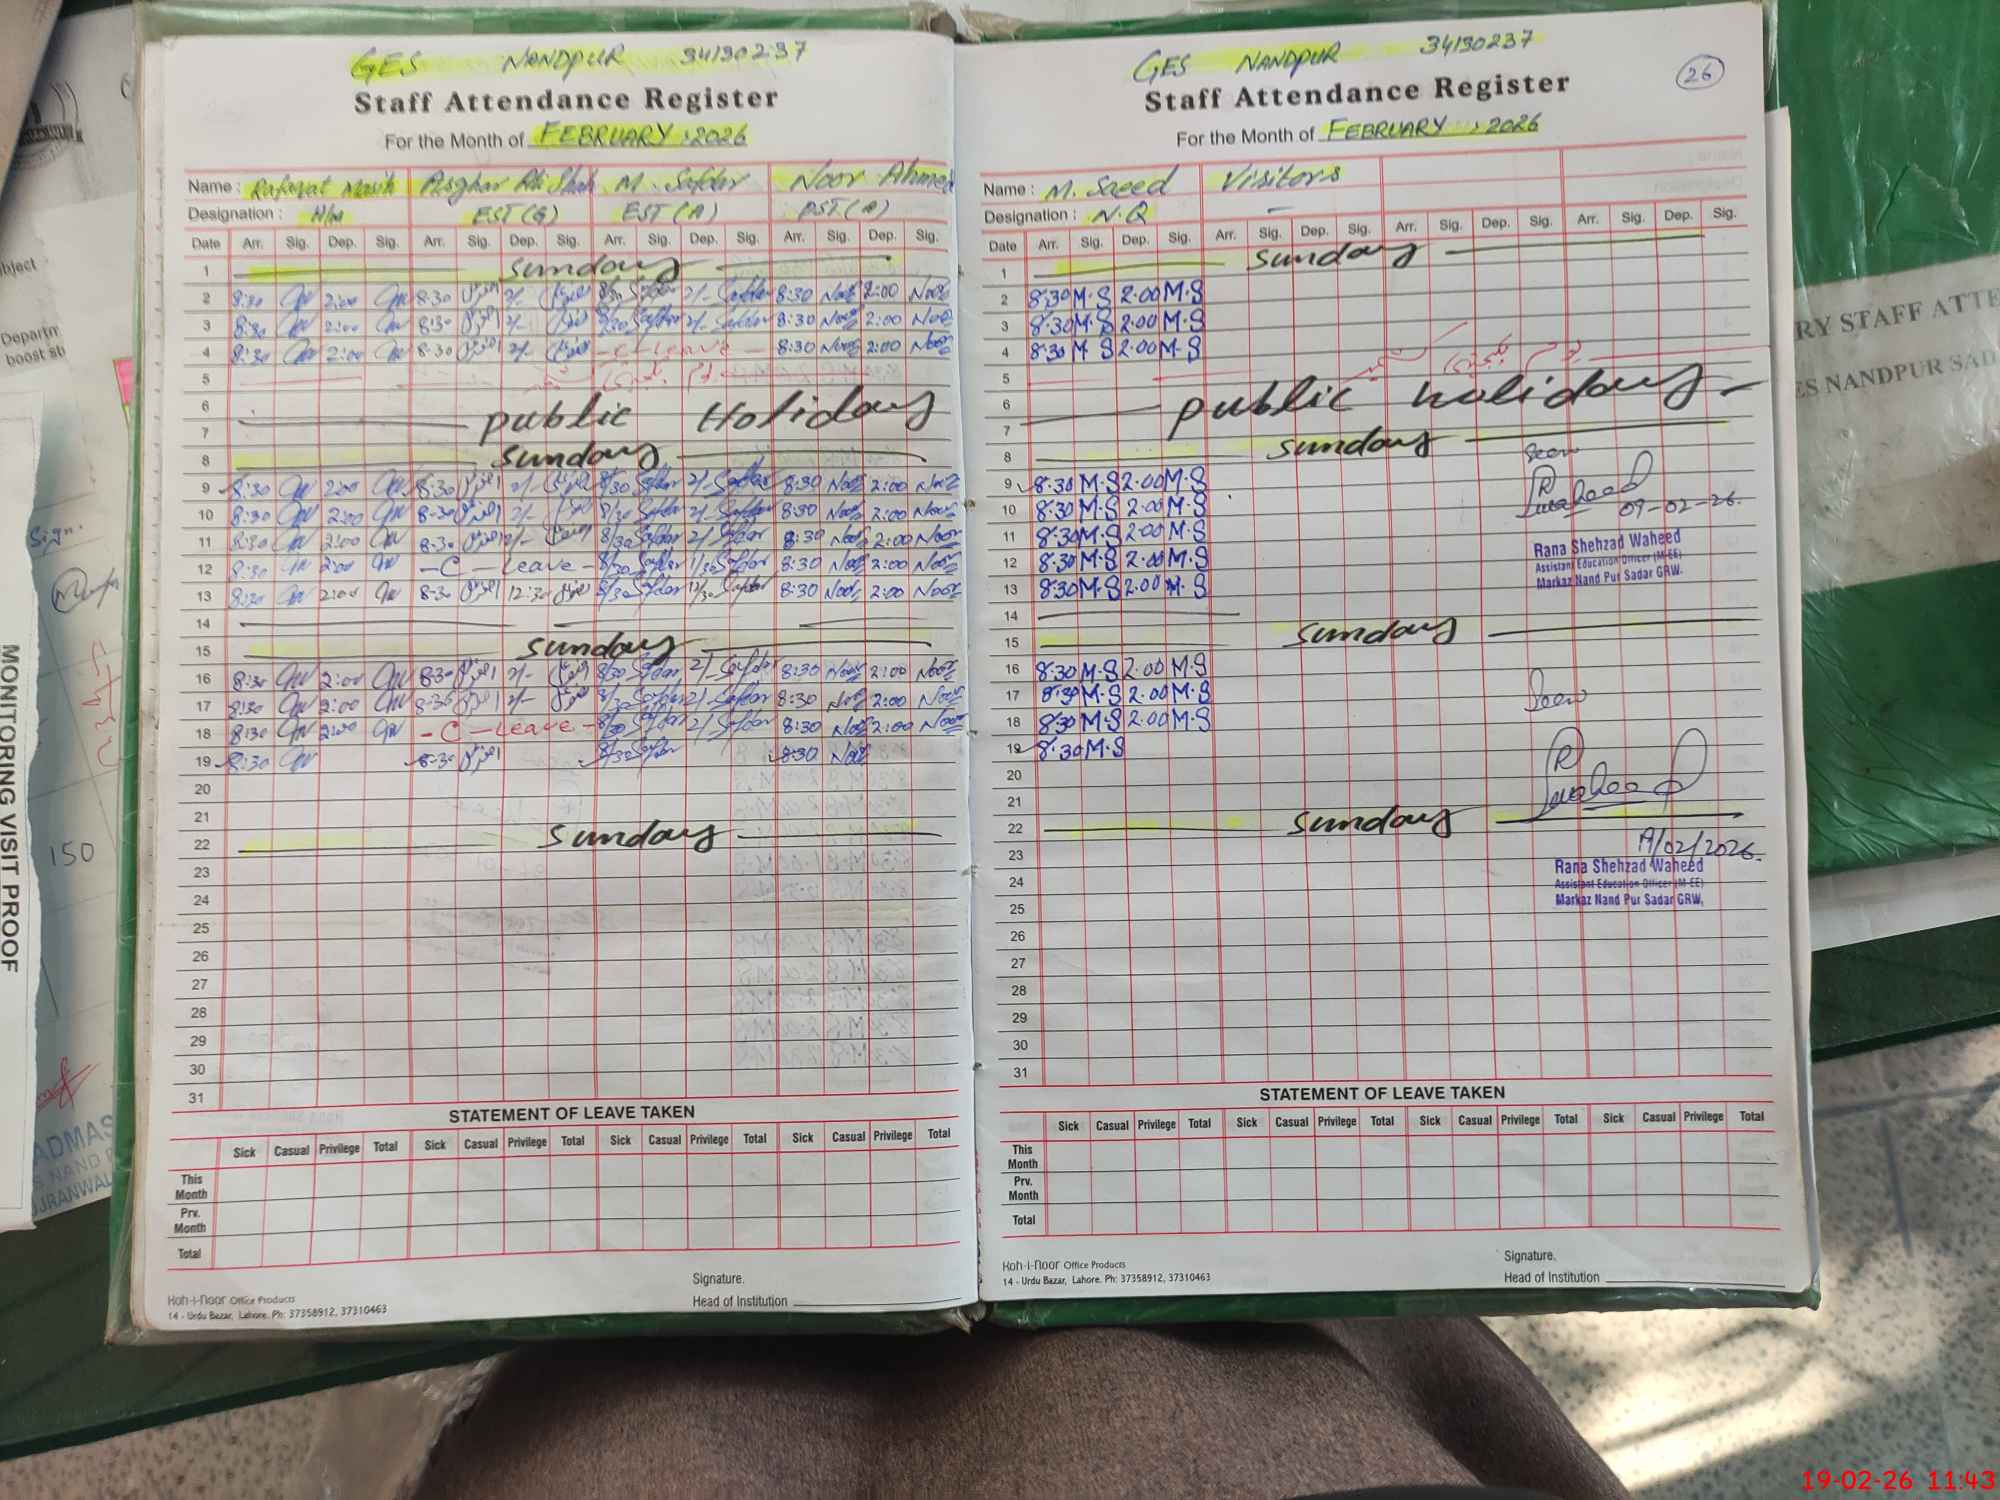 GES NANDPUR 34130237
Staff Attendance Register
For the Month of FEBRUARY, 2026
Name : Rafaqat Masih Asghar Ali Shah M. Safdar Noor Ahmed
Designation : H/M EST(G) EST(A) PST(A)
Date Arr. Sig. Dep. Sig. Arr. Sig. Dep. Sig. Arr. Sig. Dep. Sig. Arr. Sig. Dep. Sig.
1 Sunday
2 8:30 2:00 8:30 2/- 8/30 Safdar 2/- Safdar 8:30 Noor 2:00 Noor
3 8:30 2:00 8:30 2/- 8/30 Safdar 2/- Safdar 8:30 Noor 2:00 Noor
4 8:30 2:00 8:30 2/- -C-Leave- 8:30 Noor 2:00 Noor
5 یوم یکجہتی کشمیر
6 public Holiday
7
8 Sunday
9 8:30 2:00 8:30 2/- 8/30 Safdar 2/- Safdar 8:30 Noor 2:00 Noor
10 8:30 2:00 8:30 2/- 8/30 Safdar 2/- Safdar 8:30 Noor 2:00 Noor
11 8:30 2:00 8:30 2/- 8/30 Safdar 2/- Safdar 8:30 Noor 2:00 Noor
12 8:30 2:00 -C-Leave- 8/30 Safdar Safdar 8:30 Noor 2:00 Noor
13 8:30 2:00 8:30 12:30 8/30 Safdar 12/30 Safdar 8:30 Noor 2:00 Noor
14
15 Sunday
16 8:30 2:00 8:30 2/- 8/30 Safdar 2/- Safdar 8:30 Noor 2:00 Noor
17 8:30 2:00 8:30 2/- 8/30 Safdar 2/- Safdar 8:30 Noor 2:00 Noor
18 8:30 2:00 -C-Leave- 8/30 Safdar 2/- Safdar 8:30 Noor 2:00 Noor
19 8:30 8:30 8/30 Safdar 8:30 Noor
20
21
22 Sunday
23
24
25
26
27
28
29
30
31
STATEMENT OF LEAVE TAKEN
Sick Casual Privilege Total Sick Casual Privilege Total Sick Casual Privilege Total Sick Casual Privilege Total
This Month
Prv. Month
Total
Signature.
Head of Institution
Koh-i-Noor Office Products
14 - Urdu Bazar, Lahore. Ph: 37358912, 37310463
GES NANDPUR 34130237
26
Staff Attendance Register
For the Month of FEBRUARY, 2026
Name : M. Saeed Visitors
Designation : N.Q -
Date Arr. Sig. Dep. Sig. Arr. Sig. Dep. Sig. Arr. Sig. Dep. Sig. Arr. Sig. Dep. Sig.
1 Sunday
2 8:30 M.S 2:00 M.S
3 8:30 M.S 2:00 M.S
4 8:30 M S 2:00 M.S
5 یوم یکجہتی کشمیر
6 public holiday
7
8 Sunday
Seen
9 8:30 M.S 2:00 M.S
10 8:30 M.S 2:00 M.S
09-02-26.
11 8:30 M.S 2:00 M.S
Rana Shehzad Waheed
Assistant Education Officer (M-EE)
Markaz Nand Pur Sadar GRW.
12 8:30 M.S 2:00 M.S
13 8:30 M.S 2:00 M.S
14
15 Sunday
16 8:30 M.S 2:00 M.S
17 8:30 M.S 2:00 M.S
Seen
18 8:30 M.S 2:00 M.S
19 8:30 M.S
20
21
22 Sunday
23
19/02/2026.
Rana Shehzad Waheed
Assistant Education Officer (M-EE)
Markaz Nand Pur Sadar GRW,
24
25
26
27
28
29
30
31
STATEMENT OF LEAVE TAKEN
Sick Casual Privilege Total Sick Casual Privilege Total Sick Casual Privilege Total Sick Casual Privilege Total
This Month
Prv. Month
Total
Signature.
Head of Institution
Koh-i-Noor Office Products
14 - Urdu Bazar, Lahore. Ph: 37358912, 37310463
MONITORING VISIT PROOF
Sign.
150
RY STAFF ATTE
ES NANDPUR SAD
19-02-26 11:43